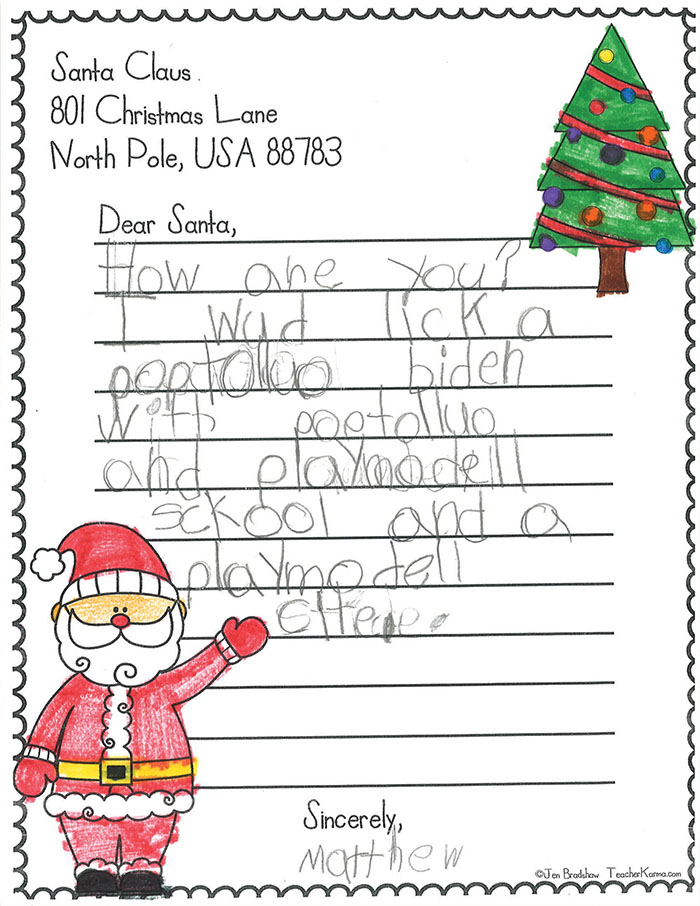 Santa Claus
801 Christmas Lane
North Pole, USA 88783
Dear Santa,
How are you?
I wud lick a
poptolluo biden
with poptolluo
and playmodell
sckool and a
playmodell
Sincerely,
matthew
©Jen Bradshaw TeacherKarma.com